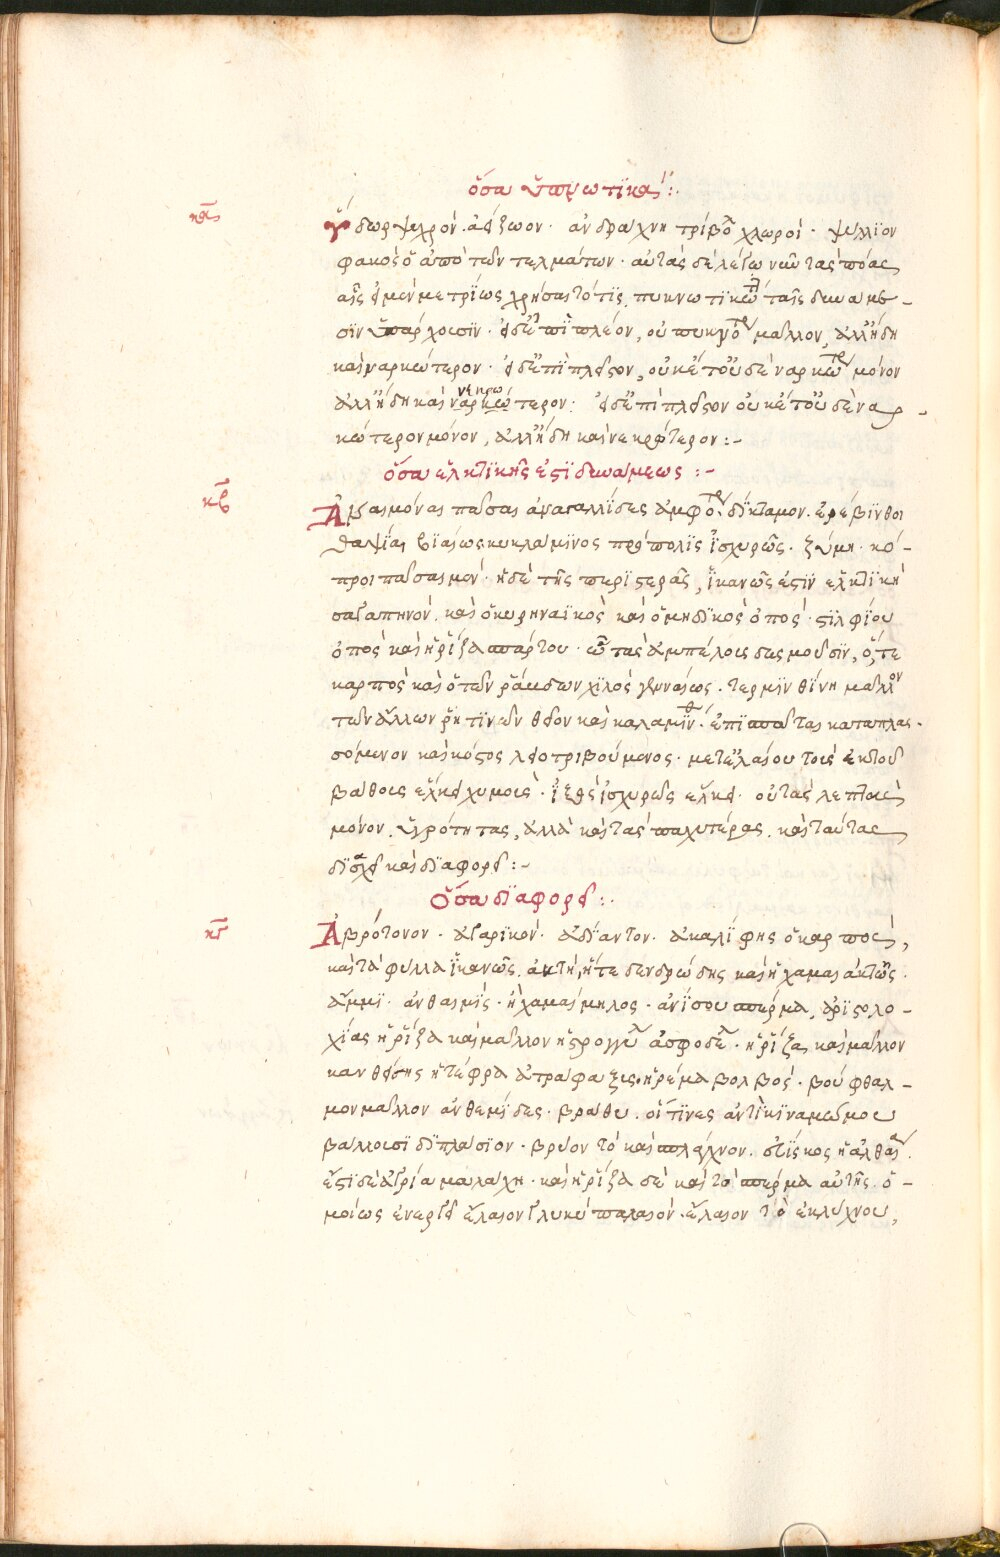 ὅσα ὑπνωτικά:
κα
ὕδωρ ψυχρόν. ἀείζωον. ἀνδράχνη τρίβολοι χλωροί. ψύλλιον
φακὸς ὁ ἀπὸ τῶν τελμάτων. αὐτὰς δὲ λέγω νῦν τὰς πόας
αἷς εἰ μὲν μετρίως χρήσαιτό τις, πυκνωτικώτεραι ταῖς δυνάμε-
σιν ὑπάρχουσιν. εἰ δ' ἐπὶ πλέον, οὐ πυκνοῦται μᾶλλον, ἀλλ' ἤδη
καὶ ναρκώτερον. εἰ δ' ἐπὶ πλεῖον, οὐκέτ' οὐδὲ ναρκῶται μόνον
ἀλλ' ἤδη καὶ ναρκώτερον νεκρω. εἰ δ' ἐπὶ πλεῖον οὐκέτ' οὐδὲ ναρ-
κώτερον μόνον, ἀλλ' ἤδη καὶ νεκρώτερον:-
ὅσα ἑλκτικῆς ἐστι δυνάμεως:-
κβ
πᾶσαι ἀναγαλλίδες ἀμφότεραι. δίκταμον. ἐρέβινθοι
θαψία βιαίως κυκλάμινος πρόπολις ἰσχυρῶς. ζύμη. κό-
προι πᾶσαι μέν. ἡ δὲ τῆς περιστερᾶς, ἱκανῶς ἐστὶν ἑλκτική
σαγαπηνόν. καὶ ὁ κυρηναϊκὸς καὶ ὁ μηδικὸς ὀπός. σιλφίου
ὀπὸς καὶ ἡ ῥίζα σπάρτου. ᾧ τὰς ἀμπέλους δεσμοῦσιν, ὅ, τε
καρπὸς καὶ ὁ τῶν ῥάβδων χυλὸς γενναίως. τερμινθίνη μᾶλλον
τῶν ἄλλων ῥητινῶν θεῖον καὶ καλαμίνθ. ἐπισπᾶται καταπλασ-
σόμενον καὶ κόστος λειοτριβούμενος. μετ' ἐλαίου τοὺς ἐκ τοῦ
βάθους ἕλκει χυμούς. ἰξὸς ἰσχυρῶς ἕλκει. οὐ τὰς λεπτὰς
μόνον. ὑγρότητας, ἀλλὰ καὶ τὰς παχυτέρας. καὶ ταύτας
διαχεῖ καὶ διαφορεῖ:-
Ὅσα διαφορεῖ:
κγ
Ἀβρότονον. ἀγαρικόν. ἀδίαντον. ἀκαλήφης ὁ καρπός,
καὶ τὰ φύλλα ἱκανῶς. ἀκτή, ἥ τε δενδρώδης καὶ ἡ χαμαιάκτως.
ἄμμι. ἀνθεμίς. ἢ χαμαίμηλος. ἀνίσου σπέρμα, ἀριστολο-
χίας ἡ ῥίζα καὶ μᾶλλον ἡ στρογγύλη ἀσφοδέλου. ἡ ῥίζα, καὶ μᾶλλον
καυθείσης ἡ τέφρα ἀτράφαξις ἠρέμα βολβός. βούφθαλ-
μον μᾶλλον ἀνθεμίδος. βράθυ. οἵτινες ἀντὶ κιναμώμου
βάλλουσι διπλάσιον. βρύον τὸ καὶ σπλάχνον. ἰβίσκος ἢ ἀλθαία.
ἔστι δὲ ἀγρία μαλάχη. καὶ ἡ ῥίζα δὲ καὶ τὸ σπέρμα αὐτῆς. ὁ-
μοίως ἐνεργεῖ ἔλαιον γλυκὺ παλαιόν. ἔλαιον τὸ ἐκ λύχνου,